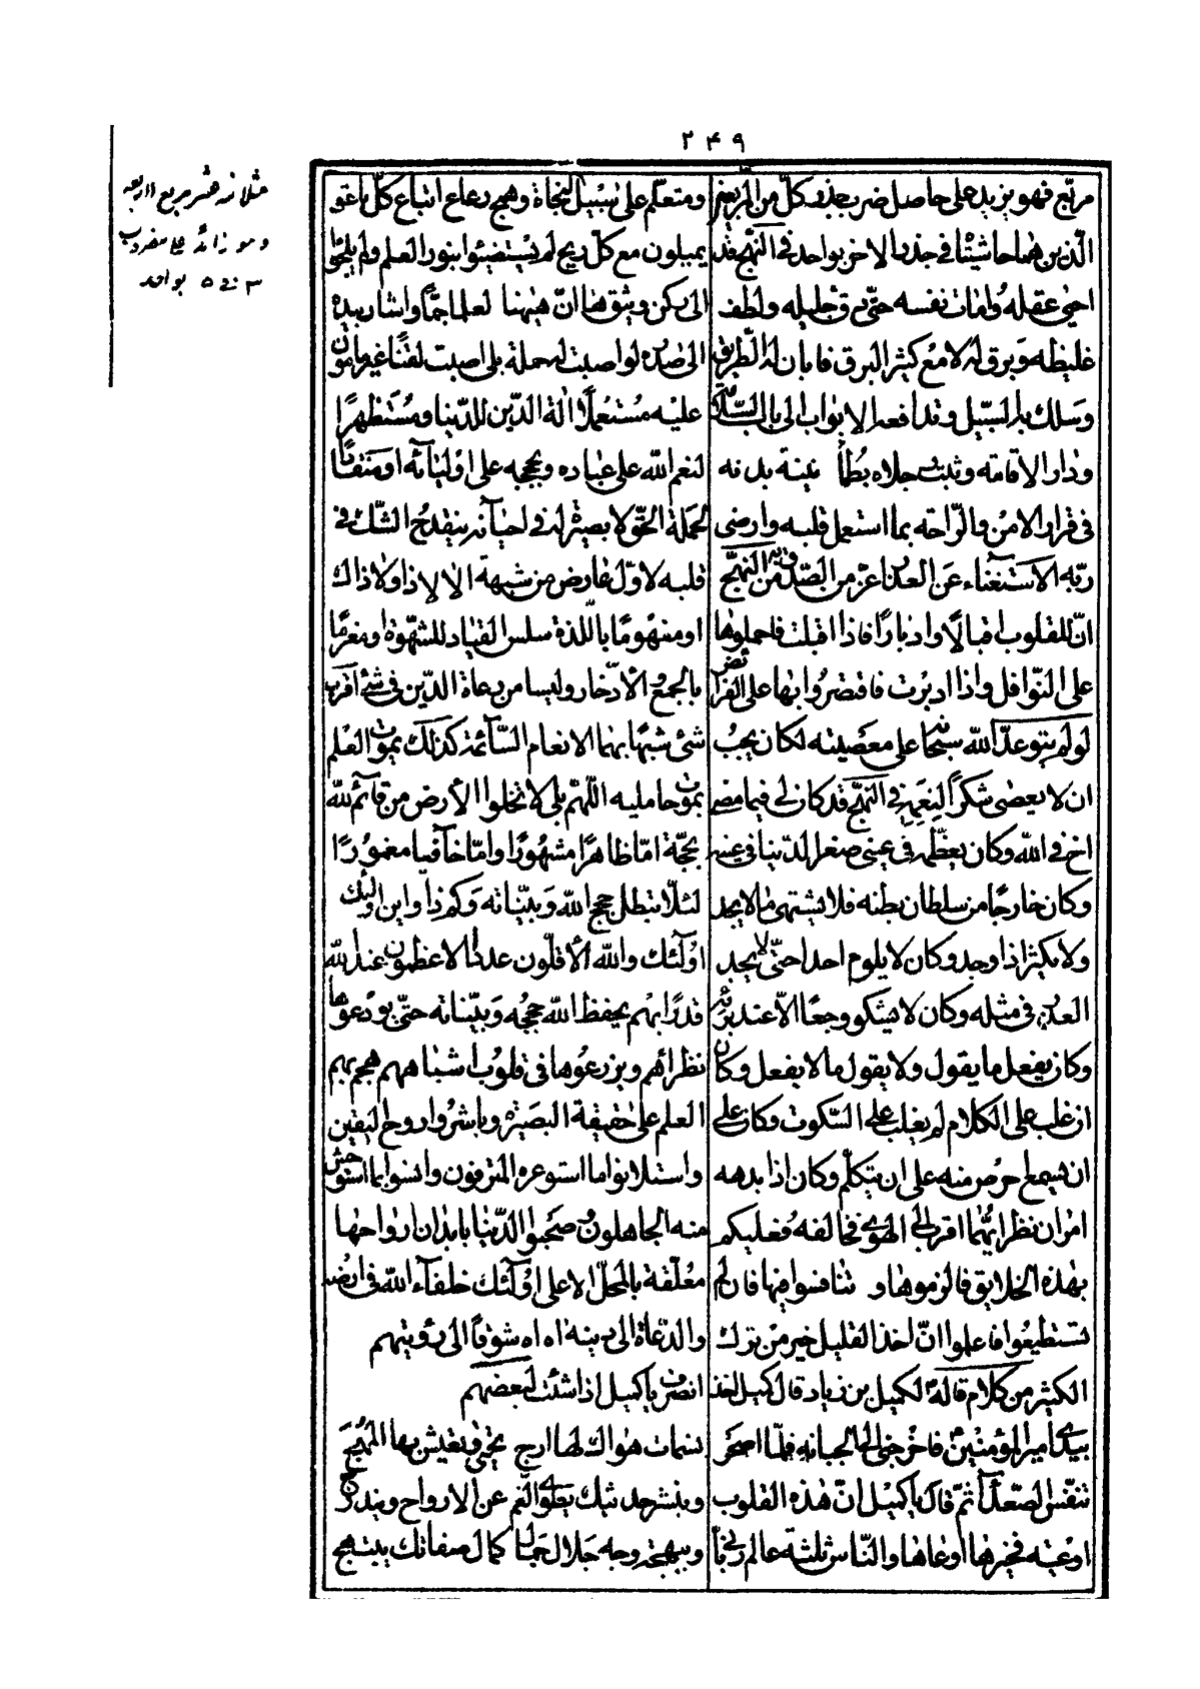 ۲۴۹
مربّع فهو يزيد على حاصل ضرب جذر كلّ من المربعين
الّذين هما حاشيتاه في جذر الاخر بواحد في النّهج قد
احيى عقله وامات نفسه حتّى دق جليله ولطف
غليظه وبرق له لامع كثير البرق فابان له الطّريق
وسلك به السّبيل وتدافعه الابواب الى باب السّلامة
ودار الاقامة وثبتت رجلاه بطمأنينة بدنه
في قرار الامن والرّاحة بما استعمل قلبه وارضى
ربّه الاستغناء عن العذر اعزّ من الصّدق به من النّهج
انّ للقلوب اقبالًا وادبارًا فاذا اقبلت فاحملوها
على النّوافل واذا ادبرت فاقتصروا بها على الفرائض
لو لم يتوعّد اللّه سبحانه على معصيته لكان يجب
ان لا يعصى شكراً لنعمه في النّهج قد كان لي فيما مضى
اخ في اللّه وكان يعظّمه في عيني صغر الدّنيا في عينه
وكان خارجًا من سلطان بطنه فلا يشتهي ما لا يجد
ولا يكثر اذا وجد وكان لا يلوم احدا حتّى لا يجد
العذر في مثله وكان لا يشكو وجعًا الّا عند برئه
وكان يفعل ما يقول ولا يقول ما لا يفعل وكان
ان غلب على الكلام لم يغلب على السّكوت وكان على
ان يسمع احرص منه على ان يتكلّم وكان اذا بدهه
امران نظر ايّهما اقرب الى الهوى فخالفه فعليكم
بهذه الخلايق فالزموها و تنافسوا فيها فان لم
تستطيعوا فاعلموا انّ اخذ القليل خير من ترك
الكثير من كلام قاله لكميل بن زياد قال كميل اخذ
بيدي امير المؤمنين فاخرجني الى الجبانه فلمّا اصحر
تنفّس الصّعداء ثمّ قال يا كميل انّ هذه القلوب
اوعيه فخيرها اوعاها والنّاس ثلثة عالم ربّاني
ومتعلّم على سبيل النجاة وهمج رعاع اتباع كلّ ناعق
يميلون مع كلّ ريح لم يستضيئوا بنور العلم ولم يلجئوا
الى ركن وثيق ها انّ هيهنا لعلما جمًّا واشار بيده
الى صدره لو اصبت له حملة بلى اصبت لقنًا غير مامون
عليه مستعملًا الة الدّين للدّنيا ومستظهرًا
لنعم اللّه على عباده وبحججه على اوليآئه او منقادًا
لحملة الحقّ لا بصيرة له في احنآئه ينقدح الشّك في
قلبه لاوّل عارض من شبهة الا لا ذا ولا ذاك
او منهومًا باللّذة سلس القياد للشهوة او مغرمًا
بالجمع والادّخار وليسا من رعاة الدّين في شئ اقرب
شئ شبهًا بهما الانعام السّآئمة كذلك يموت العلم
بموت حامليه اللّهم بلى لا تخلوا الأرض من قآئم للّه
بحجّة امّا ظاهرًا مشهورًا وامّا خآئفا مغمورًا
لئلّا تبطل حجج اللّه وبيّناته وكم ذا واين اولئك
اولئك واللّه الأقلّون عددًا الاعظمون عند اللّه
قدرًا بهم يحفظ اللّه حججه وبيّناته حتّى يودعوها
نظرائهم ويزرعوها في قلوب اشباههم هجم بهم
العلم على حقيقة البصيرة وباشروا روح اليقين
واستلانوا ما استوعره المترفون وانسوا بما استوحش
منه الجاهلون وصحبوا الدّنيا بابدان ارواحها
معلّقة بالمحلّ الاعلى اولئك خلفآء اللّه في ارضه
والدّعاة الى دينه اه اه شوقاً الى رؤيتهم
انصرف يا كميل اذا شئت لبعضهم
نسمات هواك لها ارج يحيى ويعيش بها المهج
وبنشر حديثك يطوى الغمّ عن الارواح ويندرج
وببهجة وجه جلال جمال كمال صفاتك يبتهج
مثلا نه هشر مربع اربعه
وهو زائد على مضروب
۳ في ۵ بواحد